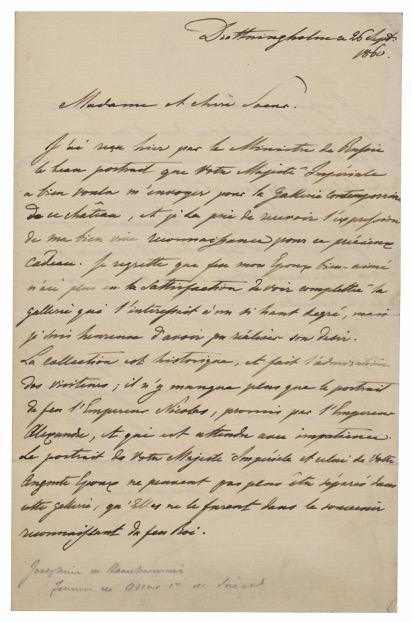 Drottningholm ce 26 Sept.
1860.
Madame et chère Soeur.
J'ai reçu hier par le Ministre de Russie
le beau portrait que Votre Majesté Impériale
a bien voulu m'envoyer pour la Gallerie Contemporaine
de ce château, et je La prie de recevoir l'expression
de ma bien vive reconnaissance pour ce précieux
cadeau. Je regrette que feu mon Epoux bien-aimé
n'aie plus eu la satisfaction de voir complettée la
gallerie qui l'intéressait à un si haut degré, mais
je suis heureuse d'avoir pu réaliser son désir.
La collection est historique, et fait l'admiration
des visiteurs; il n'y manque plus que le portrait
de feu l'Empereur Nicolas, promis par l'Empereur
Alexandre, et qui est attendu avec impatience.
Le portrait de Votre Majesté Impériale et celui de Votre
Auguste Epoux ne peuvent pas plus être séparés dans
cette gallerie, qu'Elles ne le furent dans le souvenir
reconnaissant du feu Roi.
Josephine de Beauharnais
femme de Oscar 1er de Suède